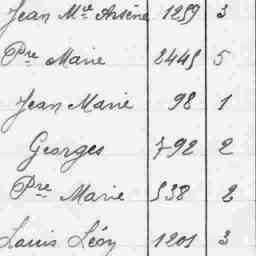 Jean Mie Arsène 1259 3
Pre Marie 2445 5
Jean Marie 98 1
Georges 792 2
Pre Marie 538 2
Louis Léon 1201 3